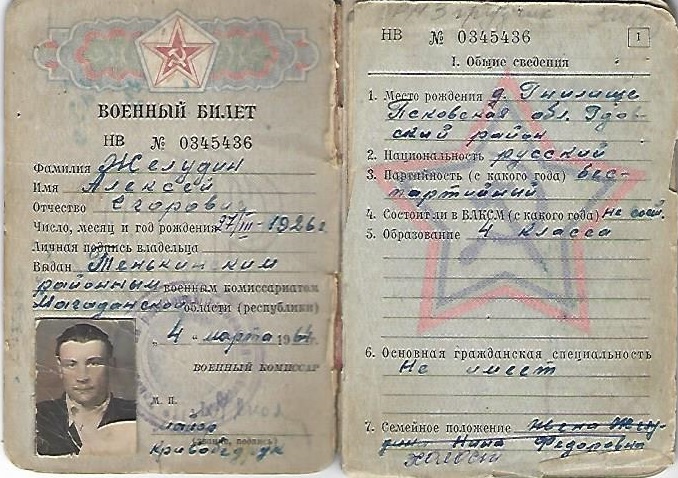 ВОЕННЫЙ БИЛЕТ
НВ № 0345436
Фамилия Желудин
Имя Алексей
Отчество Егорович
Число, месяц и год рождения 27/III-1926г
Личная подпись владельца
Выдан Тенькинским
районным военным комиссариатом
Магаданской области (республики)
„4" марта 1964г.
ВОЕННЫЙ КОМИССАР
М. П.
майор
(звание, подпись)
НВ № 0345436
1
I. Общие сведения
1. Место рождения д. Гнилище
Псковская обл. Гдов-
ский район
2. Национальность русский
3. Партийность (с какого года) бес-
партийный
4. Состоит ли в ВЛКСМ (с какого года) не сост.
5. Образование 4 класса
6. Основная гражданская специальность
Не имеет
7. Семейное положение жена Желу-
дина Нина Федоровна
холост